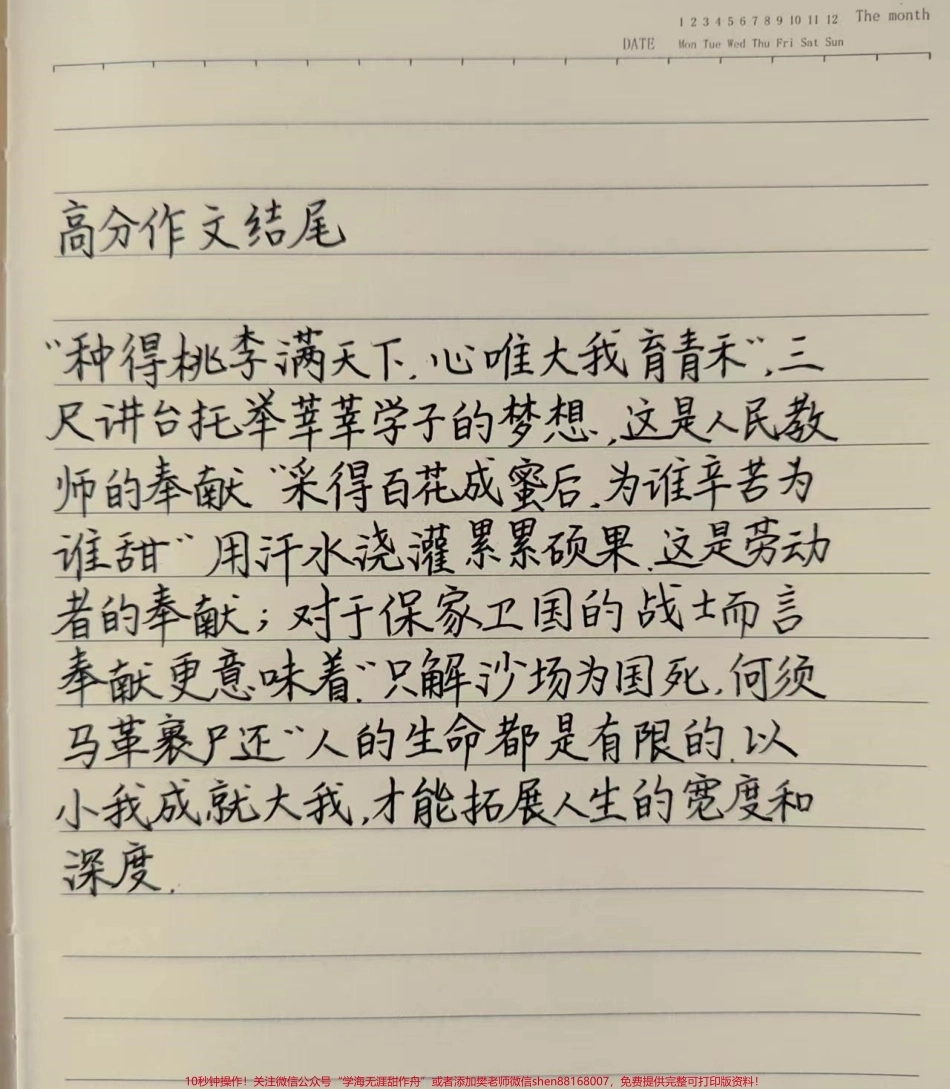 1 2 3 4 5 6 7 8 9 10 11 12 The month
DATE Mon Tue Wed Thu Fri Sat Sun
高分作文结尾
“种得桃李满天下,心唯大我育青禾”,三
尺讲台托举莘莘学子的梦想,这是人民教
师的奉献“采得百花成蜜后,为谁辛苦为
谁甜”用汗水浇灌累累硕果,这是劳动
者的奉献;对于保家卫国的战士而言
奉献更意味着“只解沙场为国死,何须
马革裹尸还”人的生命都是有限的,以
小我成就大我,才能拓展人生的宽度和
深度.
10秒钟操作!关注微信公众号“学海无涯甜作舟”或者添加樊老师微信shen88168007,免费提供完整可打印版资料!